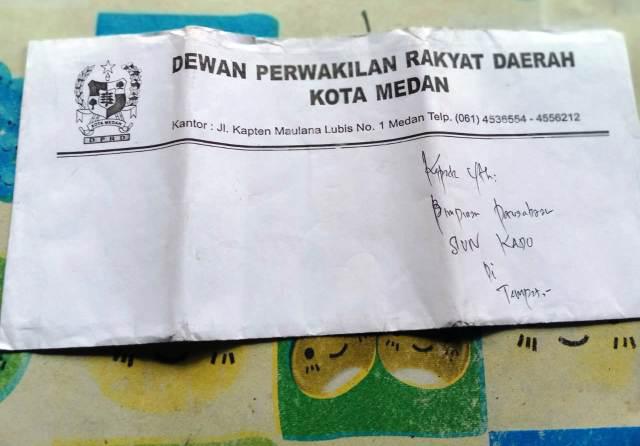 DEWAN PERWAKILAN RAKYAT DAERAH
KOTA MEDAN
Kantor : Jl. Kapten Maulana Lubis No. 1 Medan Telp. (061) 4536554 - 4556212
KOTA MEDAN
DPRD
Kepada Yth:
Pimpinan Perusahaan
SUN KADO
Di
Tempat.-